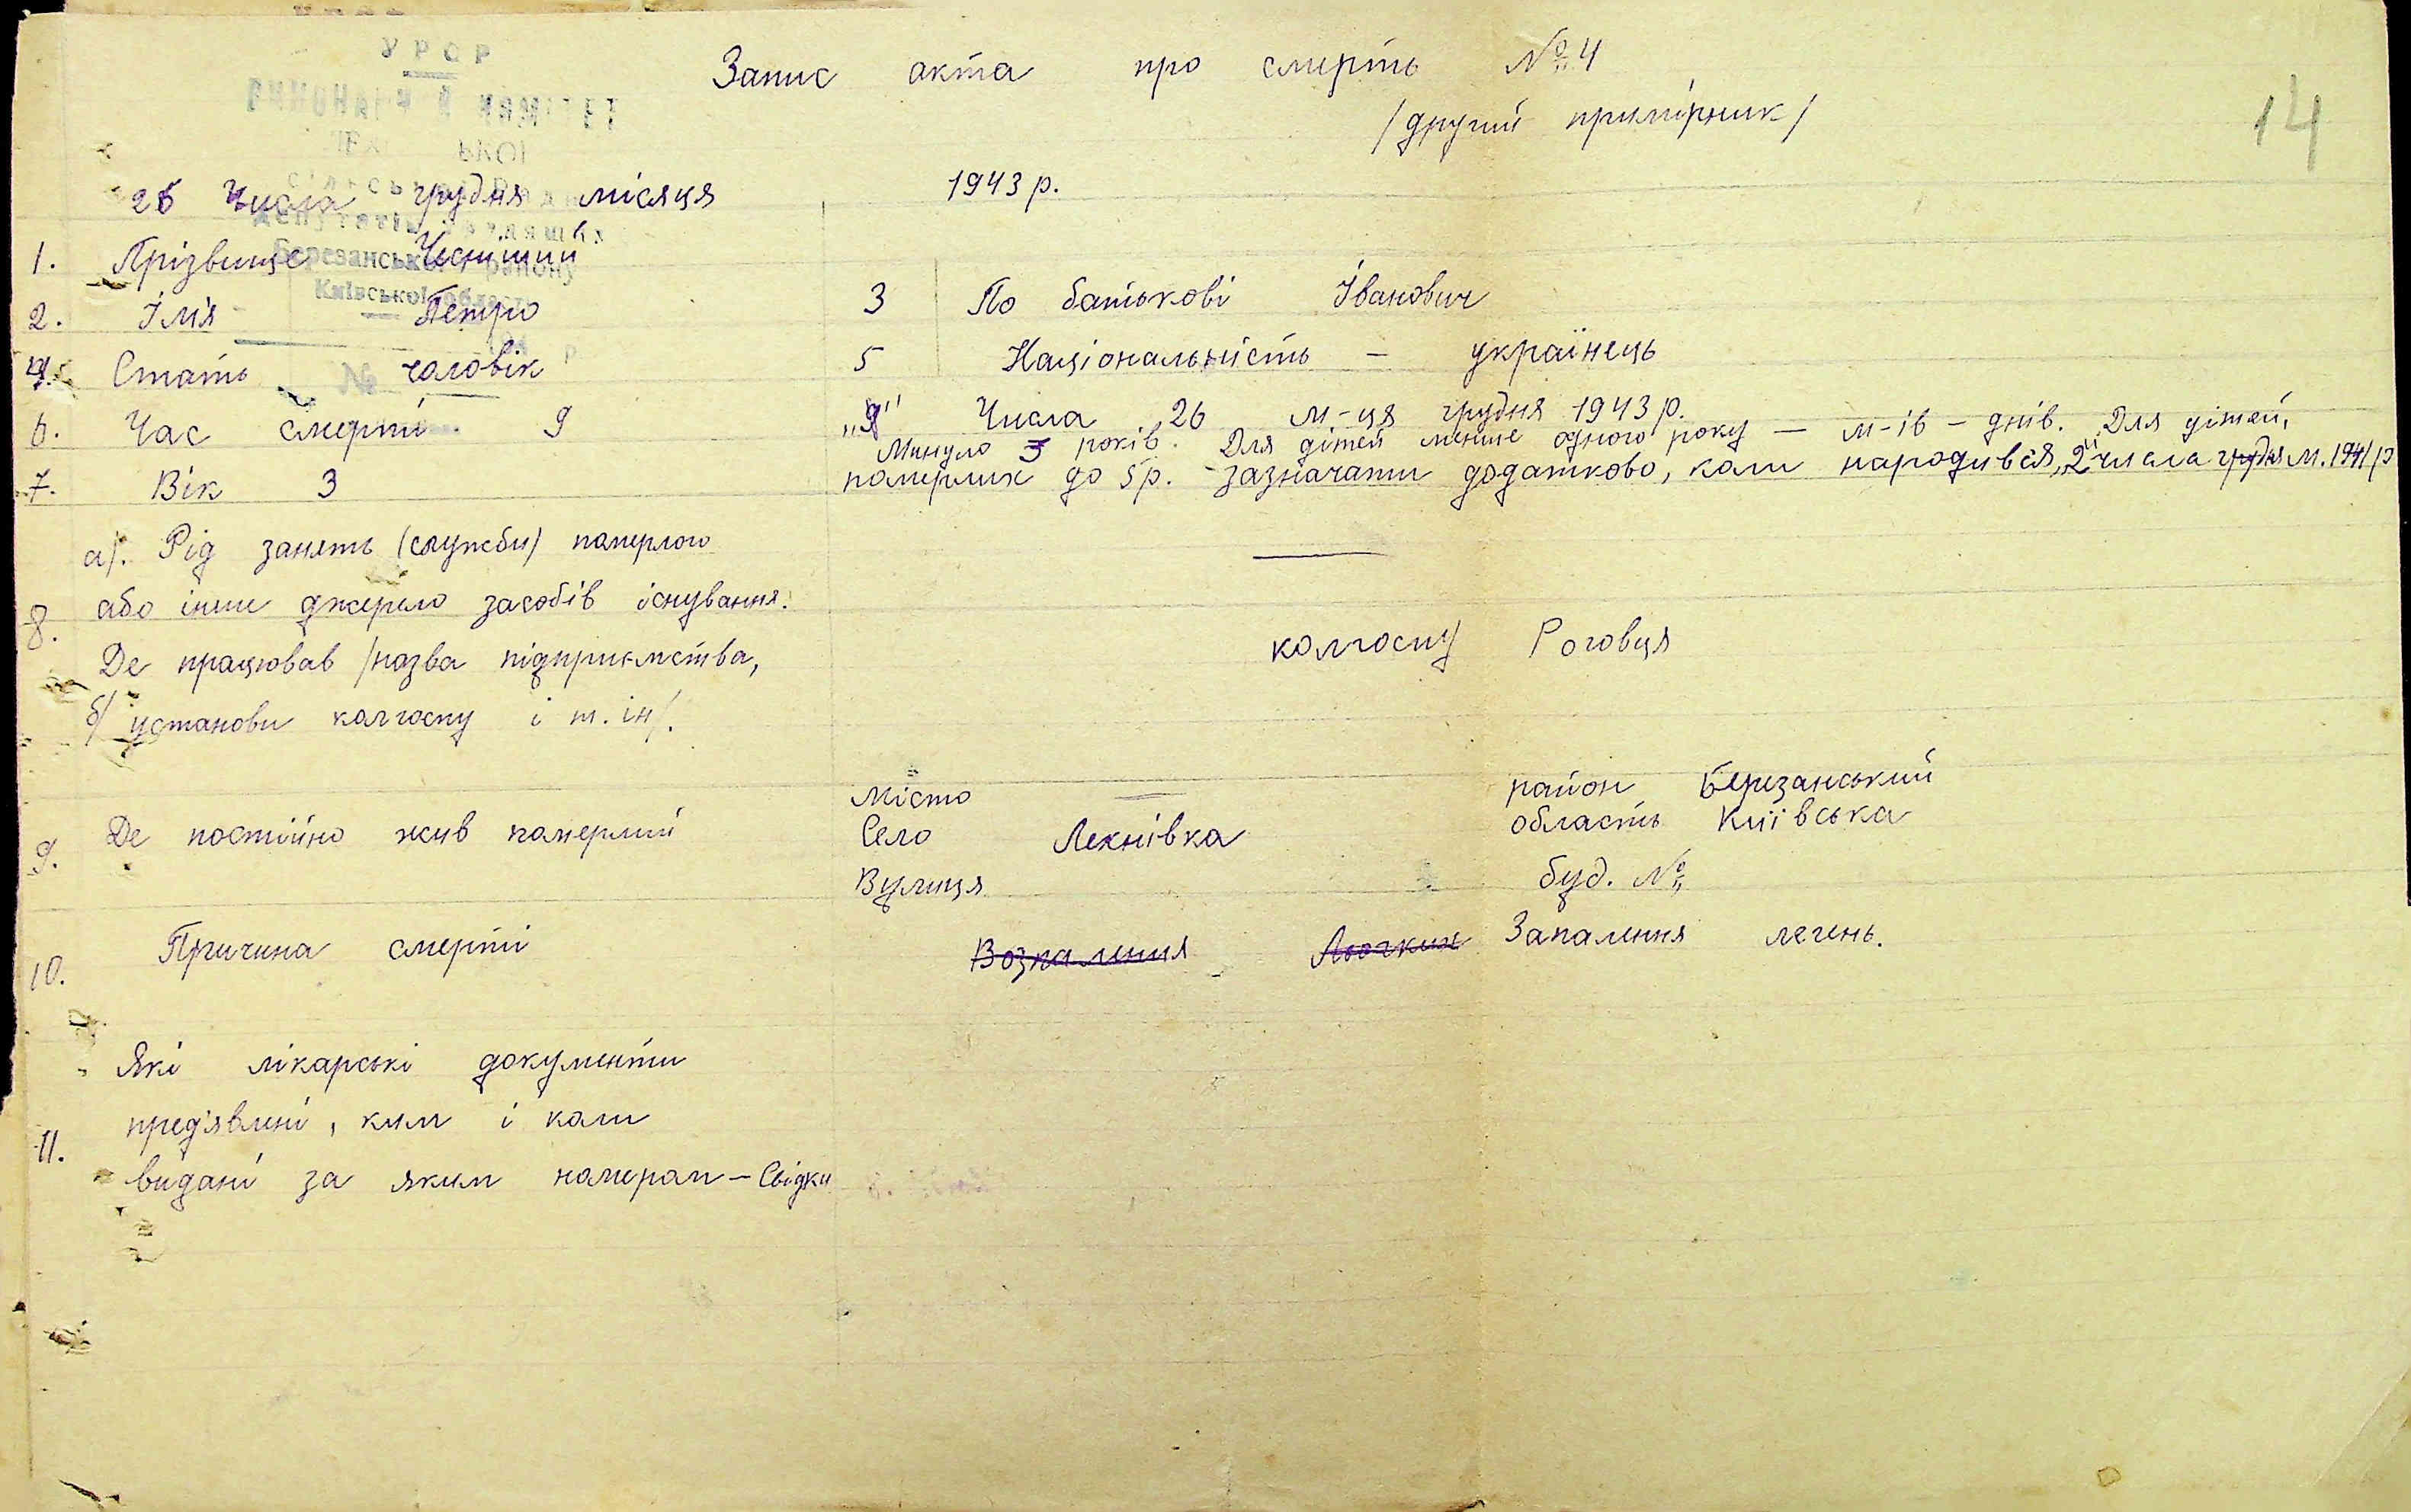 УРСР
Запис акта про смерть № 4
/другий примірник/
14
ЬКОЇ
26 Числа грудня місяця 1943 р.
депутатів трудящих
1. Прізвище
Березанського району
Київської області
2. Імя Петро 3 По батькові Іванович
4. Стать чоловік 5 Національність – українець
№
6. Час смерті 9 „9" Числа 26 м-ця грудня 1943 р.
Минуло 3 років. Для дітей менше одного року — м-ів – днів. Для дітей,
7. Вік 3 померлих до 5 р. зазначати додатково, коли народився „2" числа грудня м. 1941 р
а/. Рід занять (служби) померлого —
8. або інше джерело засобів існування.
Де працював /назва підприємства, колгоспу Роговця
б/ установи колгоспу і т. ін/.
Місто — район Березанський
9. Де постійно жив померлий Село Лехнівка область Київська
Вулиця буд. №
10. Причина смерті Возпаления Льогких Запалення легень.
Які лікарські документи
11. предявлені, ким і коли
видані за яким номером – Свідки